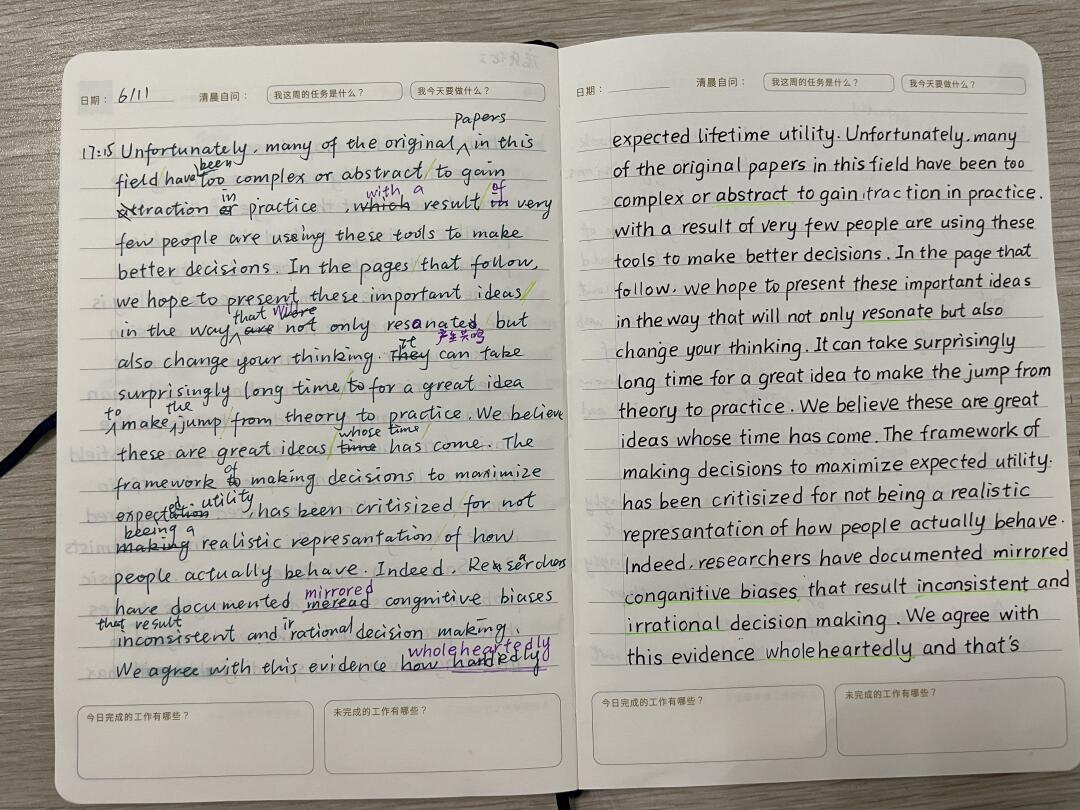 日期： 6/11 清晨自问： 我这周的任务是什么？ 我今天要做什么？
papers
17:15 Unfortunately, many of the original ^ in this
been
field have too complex or abstract / to gain
in with a of
attraction or practice , which result / in very
few people are using these tools to make
better decisions. In the pages / that follow,
we hope to present these important ideas /
that will were
in the way ^ are not only resonated but
产生共鸣
it
also change your thinking. They can take
surprisingly long time / to for a great idea
to the
^ make ^ jump / from theory to practice. We believe
whose time
these are great ideas / time has come. The
of
framework to making decisions to maximize
ed utility
expectation , has been critisized / for not
beeing a
making realistic represantation / of how
people actually behave. Indeed, Researchers
mirrored
have documented meread congnitive biases
that result
inconsistent and irrational decision making.
wholeheartedly
We agree with this evidence how hardedly
今日完成的工作有哪些？ 未完成的工作有哪些？
日期： 清晨自问： 我这周的任务是什么？ 我今天要做什么？
expected lifetime utility. Unfortunately, many
of the original papers in this field have been too
complex or abstract to gain traction in practice.
with a result of very few people are using these
tools to make better decisions. In the page that
follow, we hope to present these important ideas
in the way that will not only resonate but also
change your thinking. It can take surprisingly
long time for a great idea to make the jump from
theory to practice. We believe these are great
ideas whose time has come. The framework of
making decisions to maximize expected utility.
has been critisized for not being a realistic
represantation of how people actually behave.
Indeed, researchers have documented mirrored
conganitive biases that result inconsistent and
irrational decision making. We agree with
this evidence wholeheartedly and that's
今日完成的工作有哪些？ 未完成的工作有哪些？